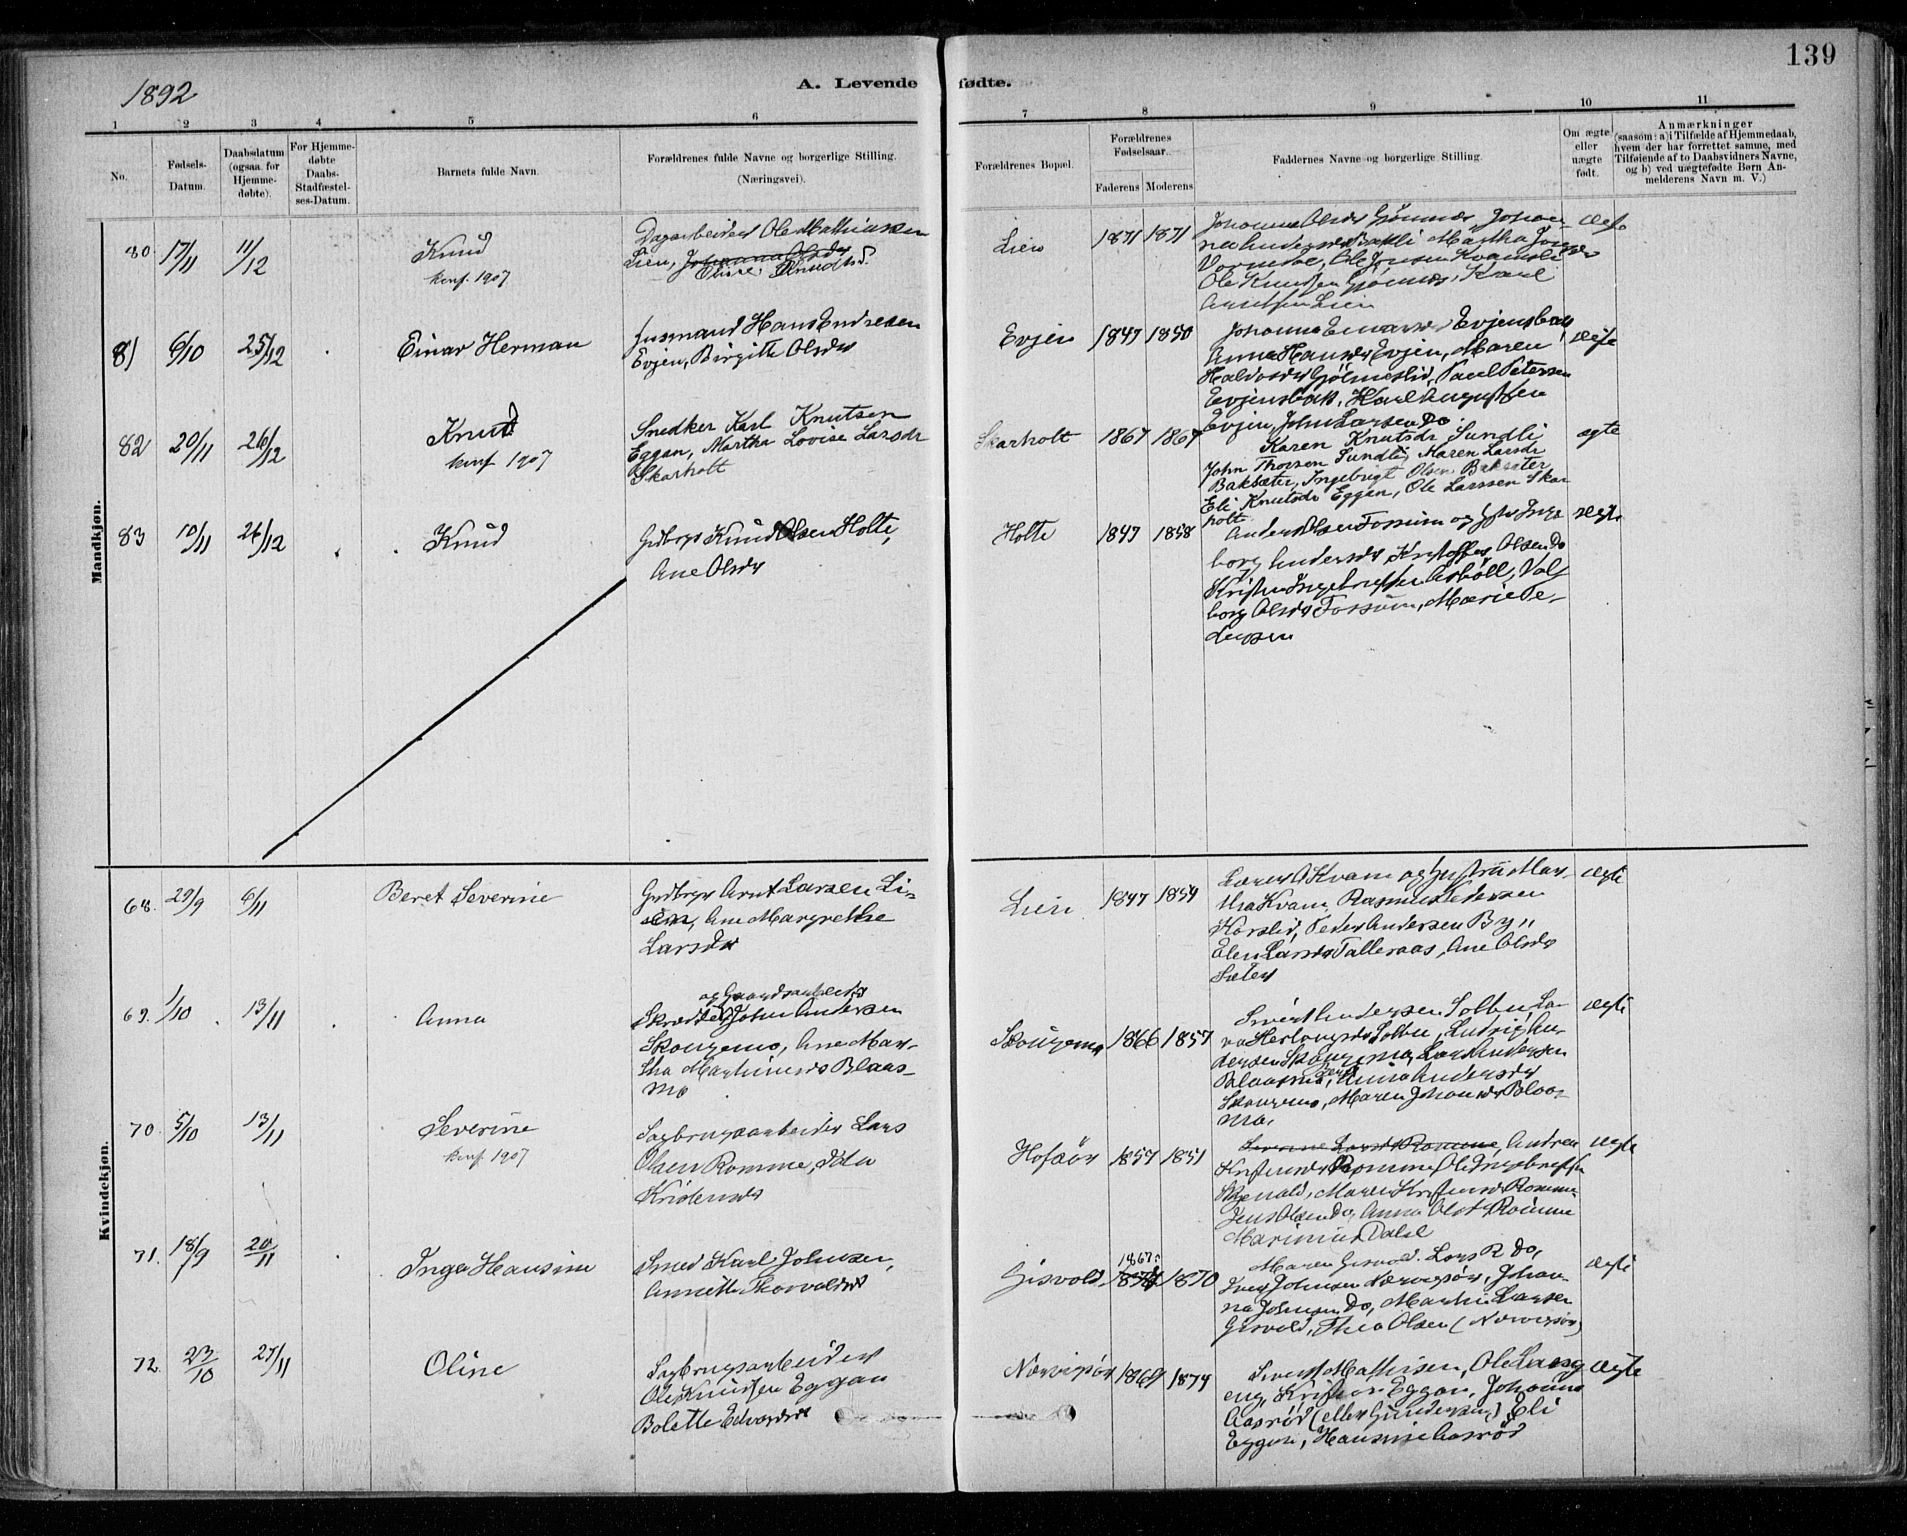 139
1892
A. Levende fødte.
1 2 3 4 5 6 7 8 9 10 11
No.
Fødsels-
Datum.
Daabsdatum
(ogsaa for
Hjemme-
døbte).
For Hjemme-
døbte
Daabs-
Stadfæstel-
ses-Datum.
Barnets fulde Navn.
Forældrenes fulde Navne og borgerlige Stilling.
(Næringsvei).
Forældrenes Bopæl.
Forældrenes
Fødselsaar.
Faderens Moderens
Faddernes Navne og borgerlige Stilling.
Om ægte
eller
uægte
født.
Anmærkninger
(saasom: a) i Tilfælde af Hjemmedaab,
hvem der har forrettet samme, med
Tilføiende af to Daabsvidners Navne,
og b) ved uægtefødte Børn An-
melderens Navn m. V.)
Mandkjøn.
80 17/11 11/12
Knud
konf. 1907
Dagarbeider Ole Mathiasen
Lien, Johanna Olsdr
Elise Knudtsd.
Lien 1871 1871
Ole Knudsen Gjønnes, Karl
Arntsen Lien
Ægte
81 6/10 25/12
Einar Herman
Husmand Hans Endresen
Evjen, Birgitte Olsdr
Evjen 1847 1850
Johanna Einarsdr Evjensbak
Anna Hansdr Evjen, Maren
Haldosdr Gjølmeslid, Paul Petersen
Evjensbak, Karl Augustsen
Evjen, John Larsen Do
ægte
82 20/11 26/12
Knut
konf 1907
Snedker Karl Knutsen
Eggan, Martha Lovise Larsdr
Skarholt
Skarholt 1867 1867
Karen Knutsdr Sundli
John Thorsen Sundli, Maren Larsdr
Baksæter, Ingebrigt Olsen Baksæter
Eli Knutsdr Eggan, Ole Larssen Skar
holt
ægte
83 10/11 26/12
Knud
Grdbrgr Knud Olsen Holte,
Ane Olsdr
Holte 1847 1858
Anders Olsen Fossum og Hstr Inge
borg Andersdr, Kristoffer Olsen Do
Kristen Ingebrigtsen Asbøll, Val
borg Olsdr Fossum, Marie Pe-
dersen
Ægte
Kvindekjøn.
68. 29/9 6/11
Beret Severine
Grdbrgr Arnt Larsen Li-
en, Ane Margrethe
Larsdr
Lien 1847 1854
Lærer A Kvam og Hustru Mar-
tha Kvam, Rasmus Pedersen
Korslid, Peder Andersen By,
Elen Larsdr Talleraas, Ane Olsdr
Sæter
ægte
69. 1/10 13/11
Anna
og Gaardsarbeider
Skræder John Andersen
Skougemo, Ane Mar-
tha Martinusdr Blaas-
mo
Skougemo 1866 1857
Sivert Andersen Solbu, La-
ra Herlougsdr Solbu, Ludvig An-
dersen Skougemo, Lars Andersen
Blaasmo, Anna Andersdr
Skougemo, Maren Johansdr Blaas-
mo.
ægte
70. 5/10 13/11
Severine
konf. 1907
Sagbrugsarbeider Lars
Olsen Romme, Ida
Kristensdr
Hofsør 1857 1851
Severine Larsdr Romme, Andrea
Kristensdr Romme, Ole Ingebrigtsen
Maren Kristensdr Romme
Jens Olsen Do, Anna Olsdt Romme
Marinius Dalsl
Ægte
71. 18/9 20/11
Inga Hansine
Smed Karl Johnsen,
Annette Thorvaldsdt
Gisvold 1867 1870
Maren Gisvold, Lars R Do,
Iver Johnsen Norvigsør, Johan-
na Johnsen Do, Martin Larsen
Gisvold, Thea Olsen (Norvigsør)
ægte
72. 23/10 27/11
Oline
Sagbrugsarbeider
Ole Knudsen Eggan
Bolette Edvardsdt
Norvigsør 1869 1874
Sivert Mathisen, Ole Lang
eng, Kristian Eggan, Johanna
Aasrød (eller Gundersen) Eli
Eggan, Hansine Aasrød
Ægte